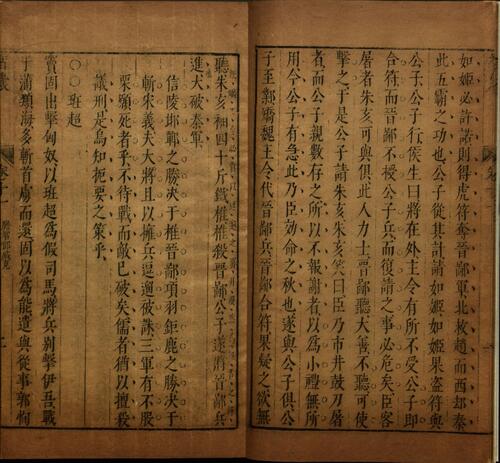 如姬必許諾則得虎符奪晉鄙軍北救趙而西却秦
此五霸之功也公子從其計請如姬如姬果盜符與
公子公子行侯生曰將在外主令有所不受公子即
合符而晉鄙不授公子兵而復請之事必危矣臣客
屠者朱亥可與俱此人力士晉鄙聽大善不聽可使
擊之于是公子請朱亥朱亥笑曰臣乃市井鼓刀屠
者而公子親數存之所以不報謝者以為小禮無所
用今公子有急此乃臣効命之秋也遂與公子俱公
子至鄴矯魏王令代晉鄙兵晉鄙合符果疑之欲無
聽朱亥袖四十斤鐵椎椎殺晉鄙公子遂將晉鄙兵
進大破秦軍
信陵邯鄲之勝决于推晉鄙項羽鉅鹿之勝决于
斬宋義夫大將且以擁兵逗遛被誅三軍有不股
栗願死者乎不待戰而敵已破矣儒者猶以擅殺
議刑是烏知扼要之策乎
○○班超
竇固出擊匈奴以班超為假司馬將兵别擊伊吾戰
于蒲類海多斬首虜而還固以為能遣與從事郭恂